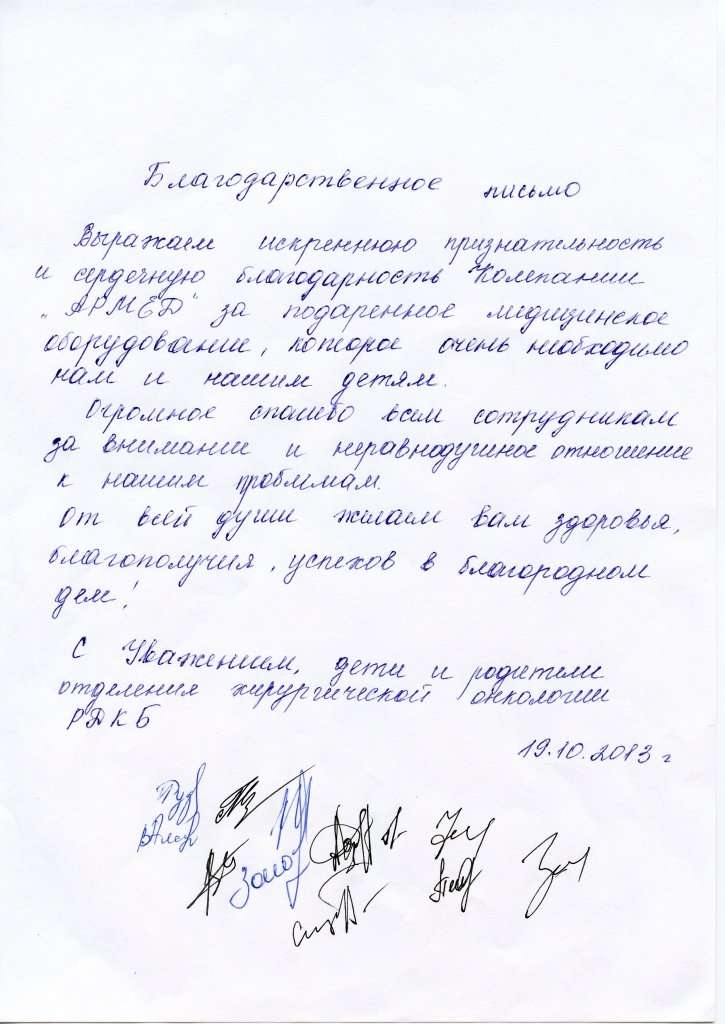 Благодарственное письмо
Выражаем искреннюю признательность
и сердечную благодарность Компании
„АРМЕД" за подаренное медицинское
оборудование, которое очень необходимо
нам и нашим детям.
Огромное спасибо всем сотрудникам
за внимание и неравнодушное отношение
к нашим проблемам.
От всей души желаем вам здоровья,
благополучия, успехов в благородном
деле!
С Уважением, дети и родители
отделения хирургической онкологии
РДКБ
19.10.2013 г